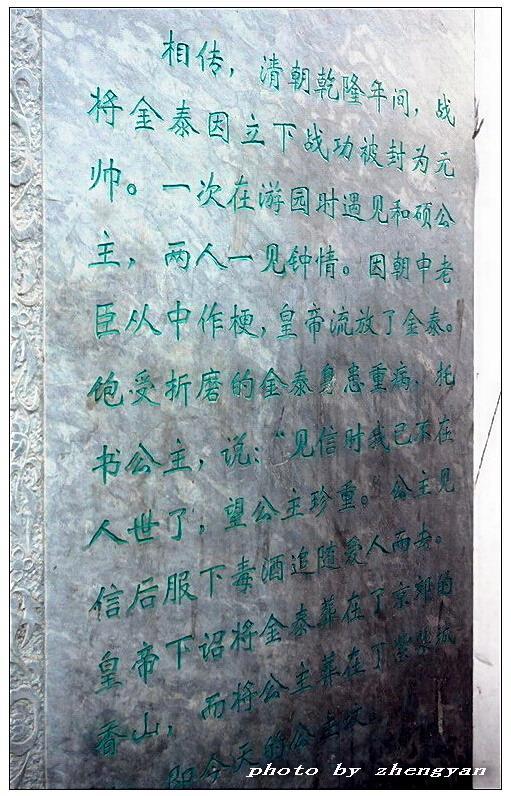 相传，清朝乾隆年间，战
将金泰因立下战功被封为元
帅。一次在游园时遇见和硕公
主，两人一见钟情。因朝中老
臣从中作梗，皇帝流放了金泰。
饱受折磨的金泰身患重病，托
书公主，说：“见信时我已不在
人世了，望公主珍重。”公主见
信后服下毒酒追随爱人而去。
皇帝下诏将金泰葬在了京郊的
香山，而将公主葬在了紫禁城
即今天的公主坟。
photo by zhengyan